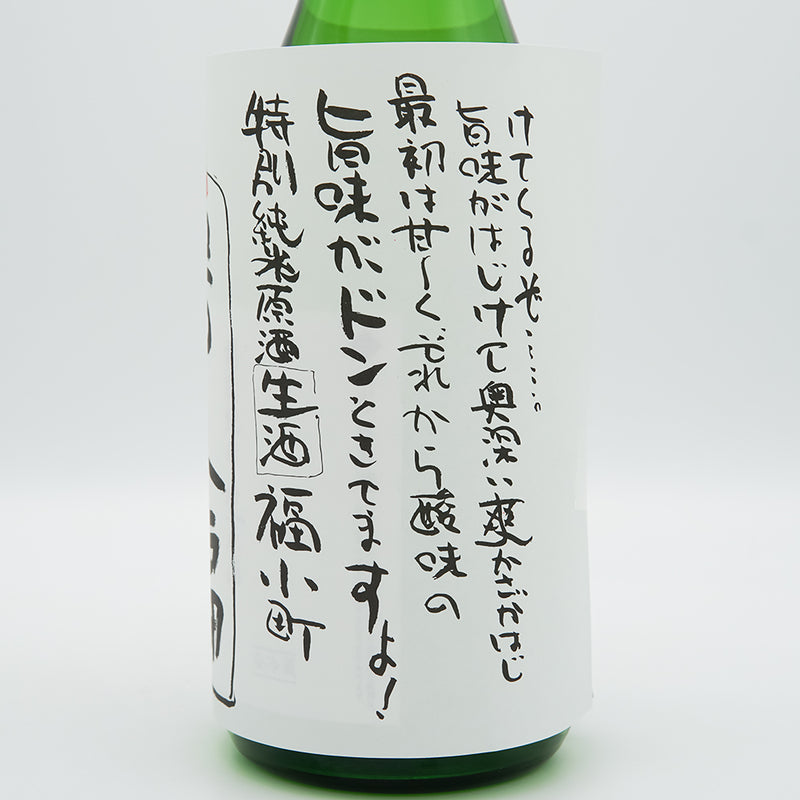 けてくるぞ……。
旨味がはじけて奥深い爽かさがはじ
最初は甘～くそれから酸味の
旨味がドンときてますよ!
特別純米原酒生酒福小町